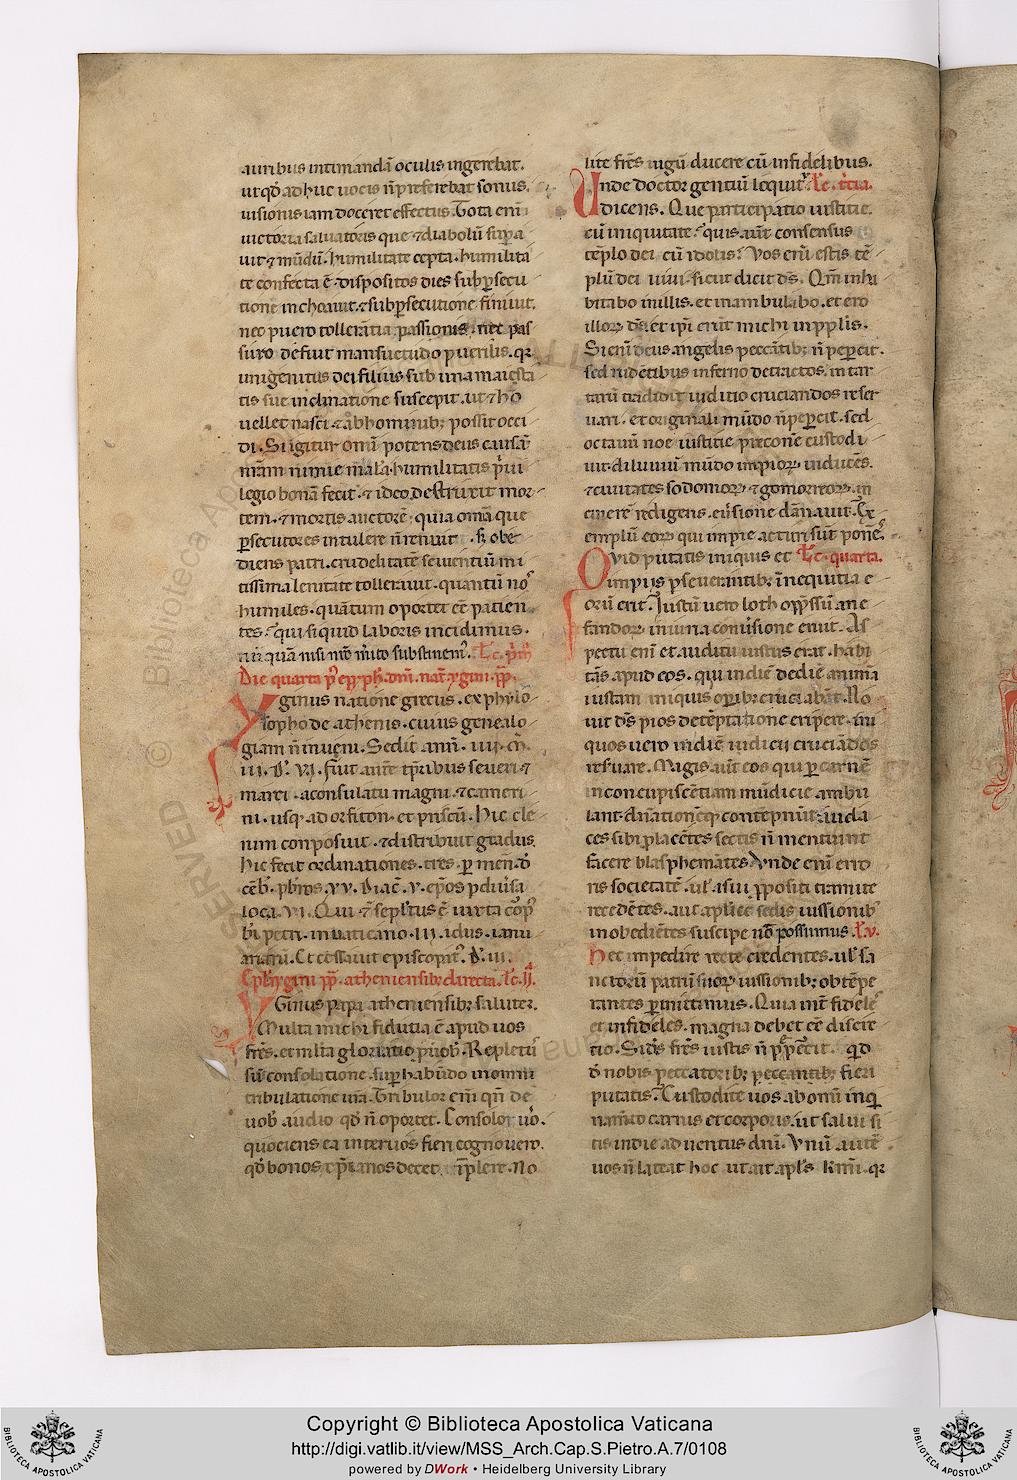 auribus intimandā oculis ingerebat.
ut qd̄ adhuc uocis n̄ preferebat sonus.
uisionis iam doceret effectus. Tota eni
uictoria saluatoris que & diabolū supa
uit & mūdū. humilitate cepta. humilita
te confecta ē. dispositos dies sub psecu
tione inchoauit. & sub psecutione finiuit.
nec puero tollerātia passionis. nec pas
suro defuit mansuetudo puerilis. qr
unigenitus dei filius sub una maiesta
tis sue inclinatione suscepit. ut & hō
uellet nasci. & ab hominib; possit occi
di. Si igitur omīpotens deus causā
nr̄am nimie malā. humilitatis priui
legio bonā fecit. & ideo destruxit mor
tem. & mortis auctorē. quia omīa que
psecutores intulere n̄ renuit. s; obe
diens patri. crudelitatē seuientiū mi
tissima lenitate tollerauit. quantū nos
humiles. quātum oportet eē patien
tes. qui siquid laboris incidimus.
nūquā nisi nr̄o merito substinem. Lc. pma
Die quarta
ginus natione grecus. ex phylo
sopho de athenis. cuius genealo
giam n̄ inueni. Sedit ann̄. iiij. m̄.
iii. d. vi. fuit autē tp̄ribus seueri &
marci. a consulatu magni & cameri
ni. usq ad orfiton. et priscū. Hic cle
rum conposuit. & distribuit gradus.
Hic fecit ordinationes. tres. p men. d
ceb. pbros. xv. diac. v. epos p diusa
loca. vi. Qui & sepltus ē iuxta corp
bi petri. in uaticano. iii. idus. ianu
arii. Et cessauit episcopat. d. iii.
Epla ygini pp. atheniensib; directa. Lc. ij.
Ginus papa atheniensib; salutē.
Multa michi fidutia ē apud uos
frēs. et mlta gloriatio p uob. Repletus
sū consolatione. suphabūdo in omni
tribulatione mea. Tribulor eni qn̄ de
uob audio qd̄ n̄ oportet. Consolor uo.
quociens ea inter uos fieri cognouero.
qd̄ bonos xpianos decet implere. No
lite frēs iugū ducere cū infidelibus.
Unde doctor gentiū loquit. Lc. tcia.
dicens. Que participatio iustitie.
cū iniquitate. quis aut consensus
tēplo dei cū idolis? Vos eni estis tē
plū dei uiui. sicut dicit ds. Qm inha
bitabo in illis. et inambulabo. et ero
illor ds. et ipi erūt michi in pplis.
Si eni deus angelis peccātib; n̄ pepercit.
sed rudētibus inferno detractos. in tar
tarū tradidit iuditio cruciandos reser
uari. et originali mūdo n̄ pepercit. sed
octauū noe iustitie preconē custodi
uit. diluuiū mūdo impior inducēs.
& ciuitates sodomor. & gomorreor. in
cinerē redigens. euersione dānauit. Ex
emplū eor qui impie acturi sūt ponēs.
Qvid putatis iniquis et Lc. quarta.
impiis pseuerantib; in nequitia e
orū erit. Iustū uero loth oppssū a ne
fandor iniuria conuersione eruit. As
pectu eni et auditu iustus erat. habi
tās apud eos. qui in diē de diē animā
iustam iniquis opib; cruciabāt. No
uit ds pios de tēptatione eripere. ini
quos uero in diē iudicii cruciādos
reseruare. Magis aut eos qui p carnē
in concupiscētiam mūdicie ambu
lant. dnationēq contēpnūt. auda
ces sibi placētes sectas n̄ metuunt
facere blasphemātes. Vnde eni erro
ris societatē. ul a sui ppositi tramite
recedētes. aut aplice sedis iussionib
inobediētes suscipe nō possumus. L. v.
Nec impedire recte credentes. ul sa
nctorū patrū suor iussionib; obtēpe
rantes pmittimus. Quia int fideles
et infideles. magna debet eē discre
tio. Si ds frēs iustis n̄ pepcit. qd
d nobis peccatorib; peccantib; fieri
putatis. Custodite uos ab omi inq
namto carnis et corporis. ut salui si
tis in die aduentus dn̄i. Vnū autē
uos n̄ lateat hoc ut ait apls kmi. qr
Copyright © Biblioteca Apostolica Vaticana
http://digi.vatlib.it/view/MSS_Arch.Cap.S.Pietro.A.7/0108
powered by DWork • Heidelberg University Library
BIBLIOTECA APOSTOLICA VATICANA
BIBLIOTECA APOSTOLICA VATICANA